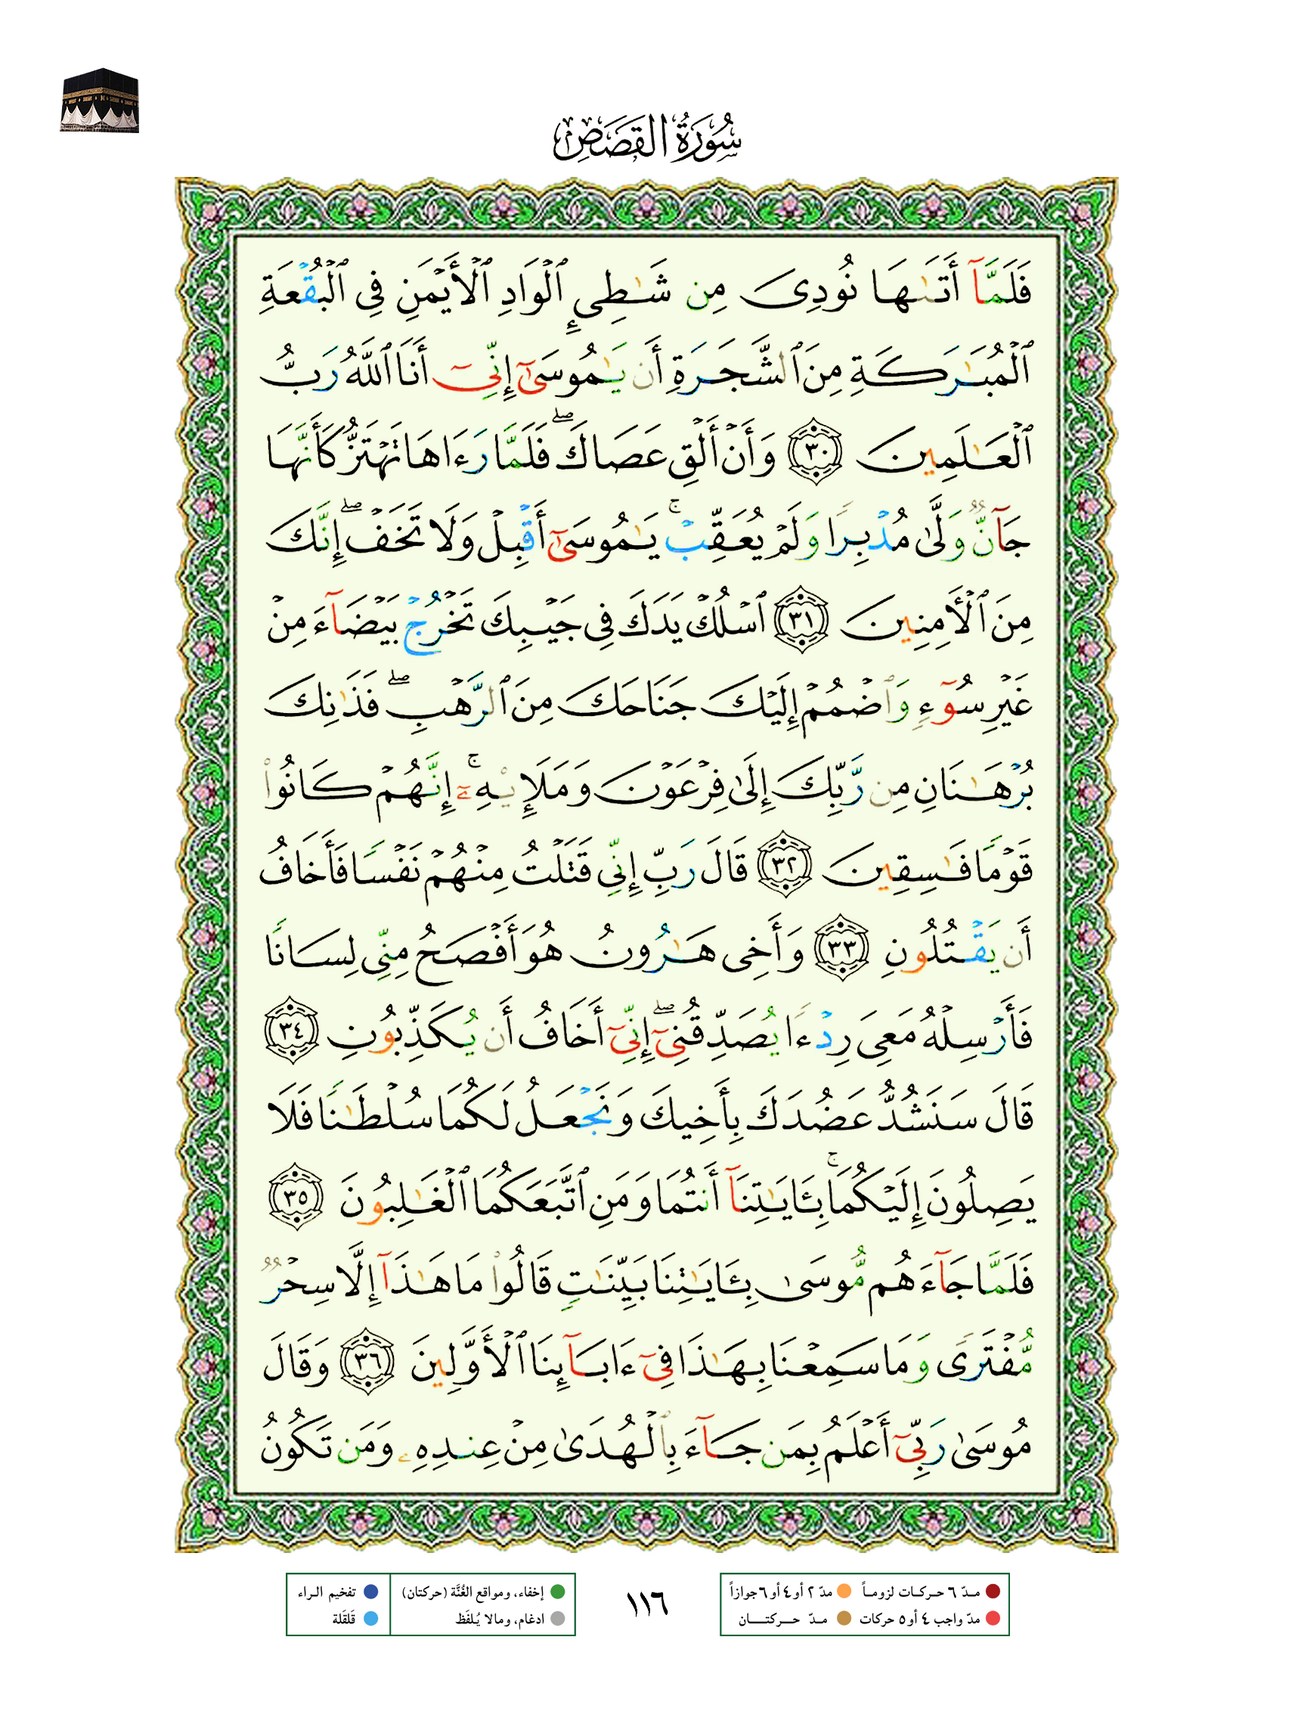 سُورَةُ القَصَصِ
فَلَمَّآ أَتَىٰهَا نُودِىَ مِن شَـٰطِىِٕ ٱلْوَادِ ٱلْأَيْمَنِ فِى ٱلْبُقْعَةِ
ٱلْمُبَـٰرَكَةِ مِنَ ٱلشَّجَرَةِ أَن يَـٰمُوسَىٰٓ إِنِّىٓ أَنَا ٱللَّهُ رَبُّ
ٱلْعَـٰلَمِينَ ٣٠ وَأَنْ أَلْقِ عَصَاكَ ۖ فَلَمَّا رَءَاهَا تَهْتَزُّ كَأَنَّهَا
جَآنٌّ وَلَّىٰ مُدْبِرًا وَلَمْ يُعَقِّبْ ۚ يَـٰمُوسَىٰٓ أَقْبِلْ وَلَا تَخَفْ ۖ إِنَّكَ
مِنَ ٱلْـَٔامِنِينَ ٣١ ٱسْلُكْ يَدَكَ فِى جَيْبِكَ تَخْرُجْ بَيْضَآءَ مِنْ
غَيْرِ سُوٓءٍ وَٱضْمُمْ إِلَيْكَ جَنَاحَكَ مِنَ ٱلرَّهْبِ ۖ فَذَٰنِكَ
بُرْهَـٰنَانِ مِن رَّبِّكَ إِلَىٰ فِرْعَوْنَ وَمَلَإِي۟هِۦٓ ۚ إِنَّهُمْ كَانُوا۟
قَوْمًا فَـٰسِقِينَ ٣٢ قَالَ رَبِّ إِنِّى قَتَلْتُ مِنْهُمْ نَفْسًا فَأَخَافُ
أَن يَقْتُلُونِ ٣٣ وَأَخِى هَـٰرُونُ هُوَ أَفْصَحُ مِنِّى لِسَانًا
فَأَرْسِلْهُ مَعِىَ رِدْءًا يُصَدِّقُنِىٓ ۖ إِنِّىٓ أَخَافُ أَن يُكَذِّبُونِ ٣٤
قَالَ سَنَشُدُّ عَضُدَكَ بِأَخِيكَ وَنَجْعَلُ لَكُمَا سُلْطَـٰنًا فَلَا
يَصِلُونَ إِلَيْكُمَا ۚ بِـَٔايَـٰتِنَآ أَنتُمَا وَمَنِ ٱتَّبَعَكُمَا ٱلْغَـٰلِبُونَ ٣٥
فَلَمَّا جَآءَهُم مُّوسَىٰ بِـَٔايَـٰتِنَا بَيِّنَـٰتٍ قَالُوا۟ مَا هَـٰذَآ إِلَّا سِحْرٌ
مُّفْتَرًى وَمَا سَمِعْنَا بِهَـٰذَا فِىٓ ءَابَآئِنَا ٱلْأَوَّلِينَ ٣٦ وَقَالَ
مُوسَىٰ رَبِّىٓ أَعْلَمُ بِمَن جَآءَ بِٱلْهُدَىٰ مِنْ عِندِهِۦ وَمَن تَكُونُ
مـدّ ٦ حـركـات لزومـاً مدّ ٢ أو ٤ أو ٦ جوازاً
مدّ واجب ٤ أو ٥ حركات مـدّ حـــركتـــــان
١١٦
إخفاء، ومواقع الغُنَّة (حركتان) تفخيم الـراء
ادغام، ومالا يُـلفَظ قَلقَلة